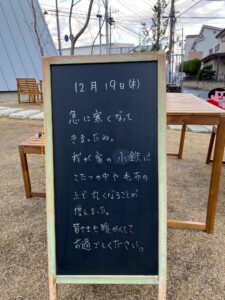 12月19日(木)
急に寒くなって
きましたね。
我が家の小鉄は
こたつの中や毛布の
上で丸くなることが
増えました。
皆さまも暖かくして
お過ごしください。